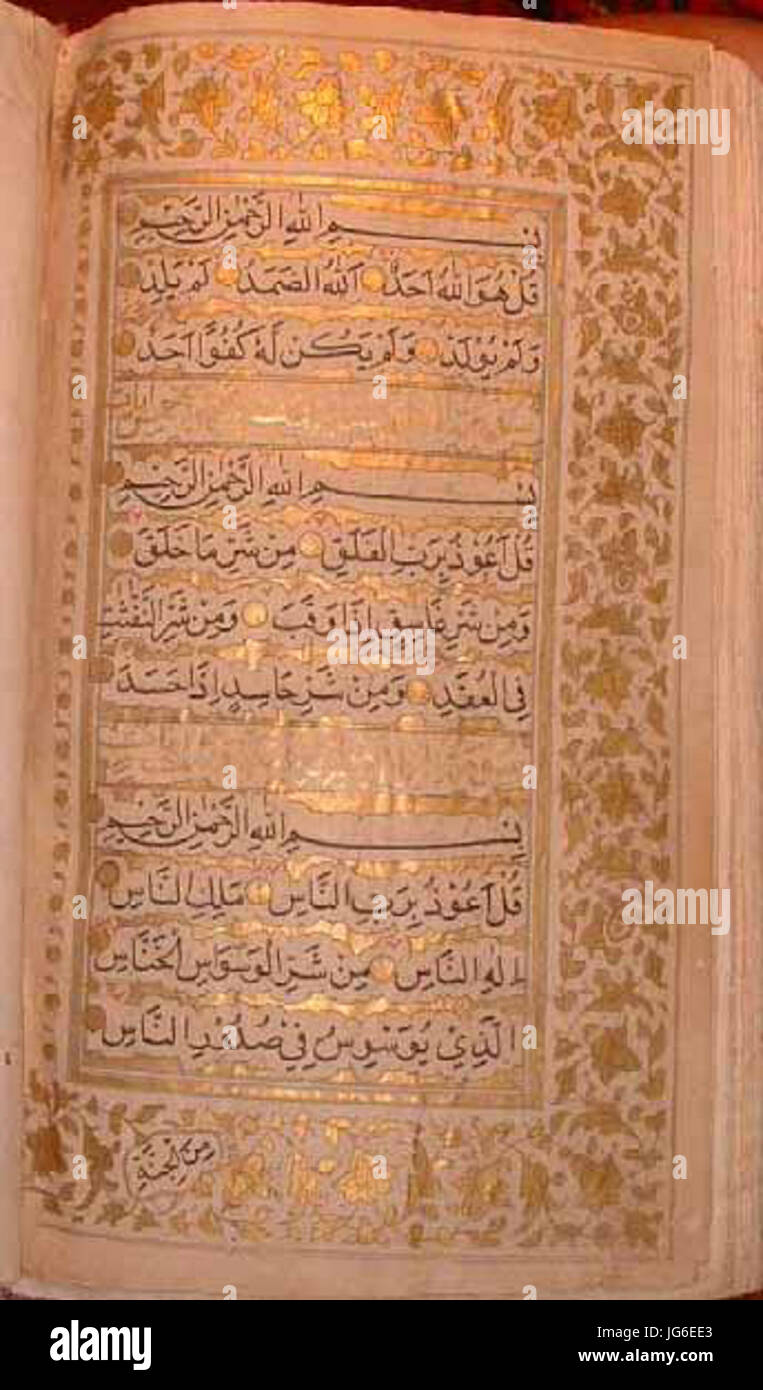 بِسْمِ اللهِ الرَّحْمٰنِ الرَّحِيْمِ
قُلْ هُوَ اللهُ اَحَدٌ اَللهُ الصَّمَدُ لَمْ يَلِدْ
وَلَمْ يُوْلَدْ وَلَمْ يَكُنْ لَهُ كُفُوًا اَحَدٌ
بِسْمِ اللهِ الرَّحْمٰنِ الرَّحِيْمِ
قُلْ اَعُوْذُ بِرَبِّ الْفَلَقِ مِنْ شَرِّ مَا خَلَقَ
وَمِنْ شَرِّ غَاسِقٍ اِذَا وَقَبَ وَمِنْ شَرِّ النَّفّٰثٰتِ
فِي الْعُقَدِ وَمِنْ شَرِّ حَاسِدٍ اِذَا حَسَدَ
بِسْمِ اللهِ الرَّحْمٰنِ الرَّحِيْمِ
قُلْ اَعُوْذُ بِرَبِّ النَّاسِ مَلِكِ النَّاسِ
اِلٰهِ النَّاسِ مِنْ شَرِّ الْوَسْوَاسِ الْخَنَّاسِ
الَّذِيْ يُوَسْوِسُ فِيْ صُدُوْرِ النَّاسِ
مِنَ الْجِنَّةِ
alamy stock photo
JG6EE3
www.alamy.com